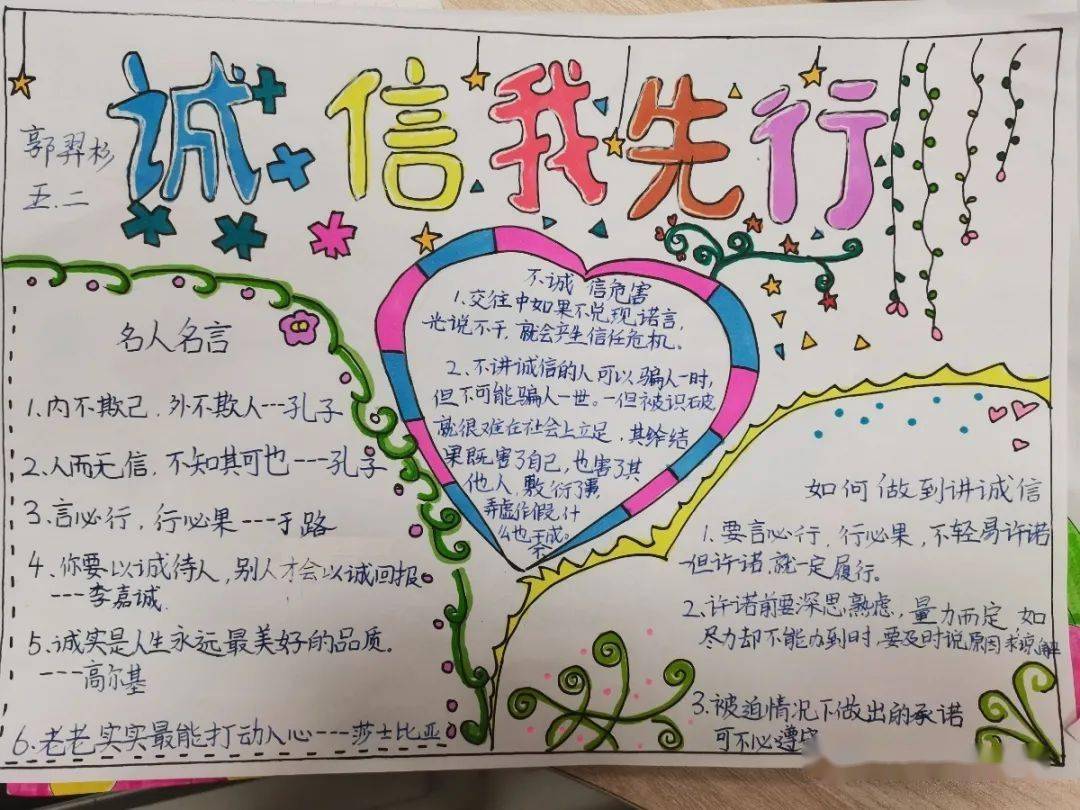 诚信我先行
郭羿杉
五.二
名人名言
1.内不欺己,外不欺人---孔子
2.人而无信,不知其可也---孔子
3.言必行,行必果---于路
4.你要以诚待人,别人才会以诚回报。
---李嘉诚.
5.诚实是人生永远最美好的品质.
----高尔基
6.老老实实最能打动人心---莎士比亚
不诚信危害
1.交往中如果不兑现诺言,
光说不干,就会产生信任危机。
2.不讲诚信的人可以骗人一时,
但不可能骗人一世。一但被识破,
就很难在社会上立足,其给结
果既害了自己,也害了其
他人,敷衍了事
弄虚作假,什
么也干成。
不
如何做到讲诚信
1.要言必行,行必果,不轻易许诺
一但许诺,就一定履行。
2.许诺前要深思熟虑,量力而定,如
尽力却不能办到时,要及时说原因求谅解
3.被迫情况下做出的承诺
可不必遵